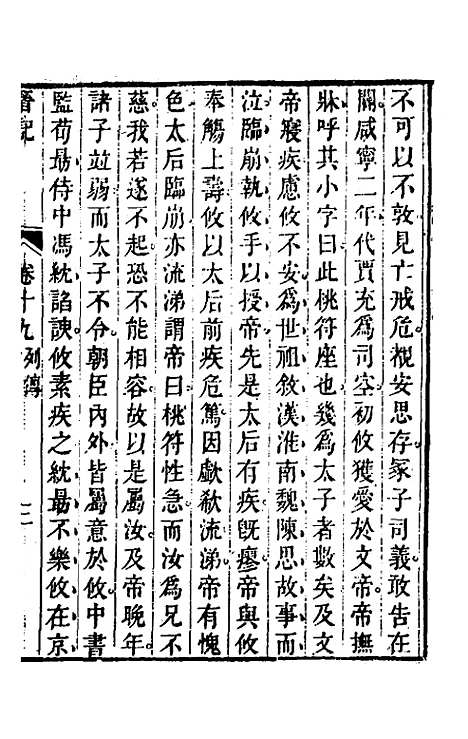 不可以不敦見亡戒危覩安思存冢子司義敢告在
閽咸寧二年代賈充爲司空初攸獲愛於文帝帝撫
牀呼其小字曰此桃符座也幾爲太子者數矣及文
帝寢疾慮攸不安爲世祖敘漢淮南魏陳思故事而
泣臨崩執攸手以授帝先是太后有疾旣瘳帝與攸
奉觴上壽攸以太后前疾危篤因歔欷流涕帝有愧
色太后臨崩亦流涕謂帝曰桃符性急而汝爲兄不
慈我若遂不起恐不能相容故以是屬汝及帝晚年
諸子竝弱而太子不令朝臣內外皆屬意於攸中書
監荀勗侍中馮紞諂諛攸素疾之紞勗不樂攸在京
晋記 卷十九 列傳